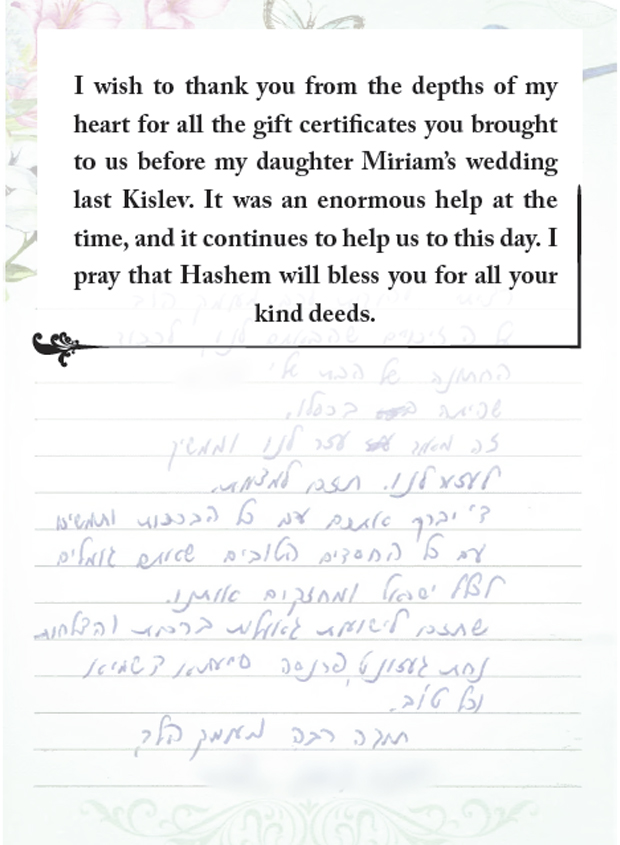 I wish to thank you from the depths of my
heart for all the gift certificates you brought
to us before my daughter Miriam's wedding
last Kislev. It was an enormous help at the
time, and it continues to help us to this day. I
pray that Hashem will bless you for all your
kind deeds.
על הזיכויים שהבאתם לנו, לכבוד
החתונה של הבת שלי
שהיתה בכסלו.
זה מאוד עזר לנו וממשיך
לעזור לנו. תזכו למצוות.
ד' יברך אתכם עם כל הברכות ותמשיכו
עם כל החסדים הטובים שאתם גומלים
לכלל ישראל ומחזקים אותנו.
שתזכו לישועות גדולות ברכות והצלחות
נחת פרנסה סיעתא דשמיא
וכל טוב.
תודה רבה מעומק הלב